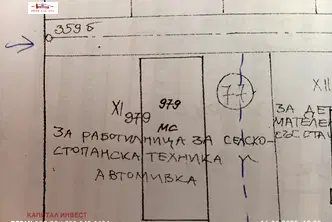 359б
XI 979
979
МС
77
XII
ЗА РАБОТИЛНИЦА ЗА СЕЛСКО-
СТОПАНСКА ТЕХНИКА И
АВТОМИВКА
ЗА ДЕР
МАТЕЛЕН
СЪС СТАН
КАПИТАЛ ИНВЕСТ